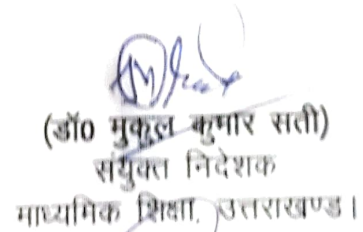 (डॉ0 मुकुल कुमार सती)
संयुक्त निदेशक
माध्यमिक शिक्षा, उत्तराखण्ड।